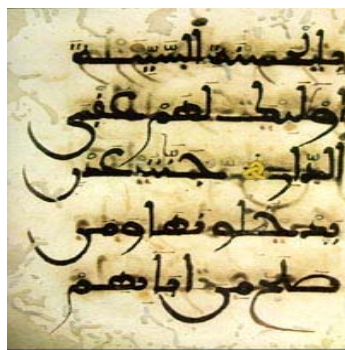 بالحسنة السَّيِّئة
اولئك لهم عقبى
الدار جنت عدن
يدخلونها ومن
صلح من ابائهم